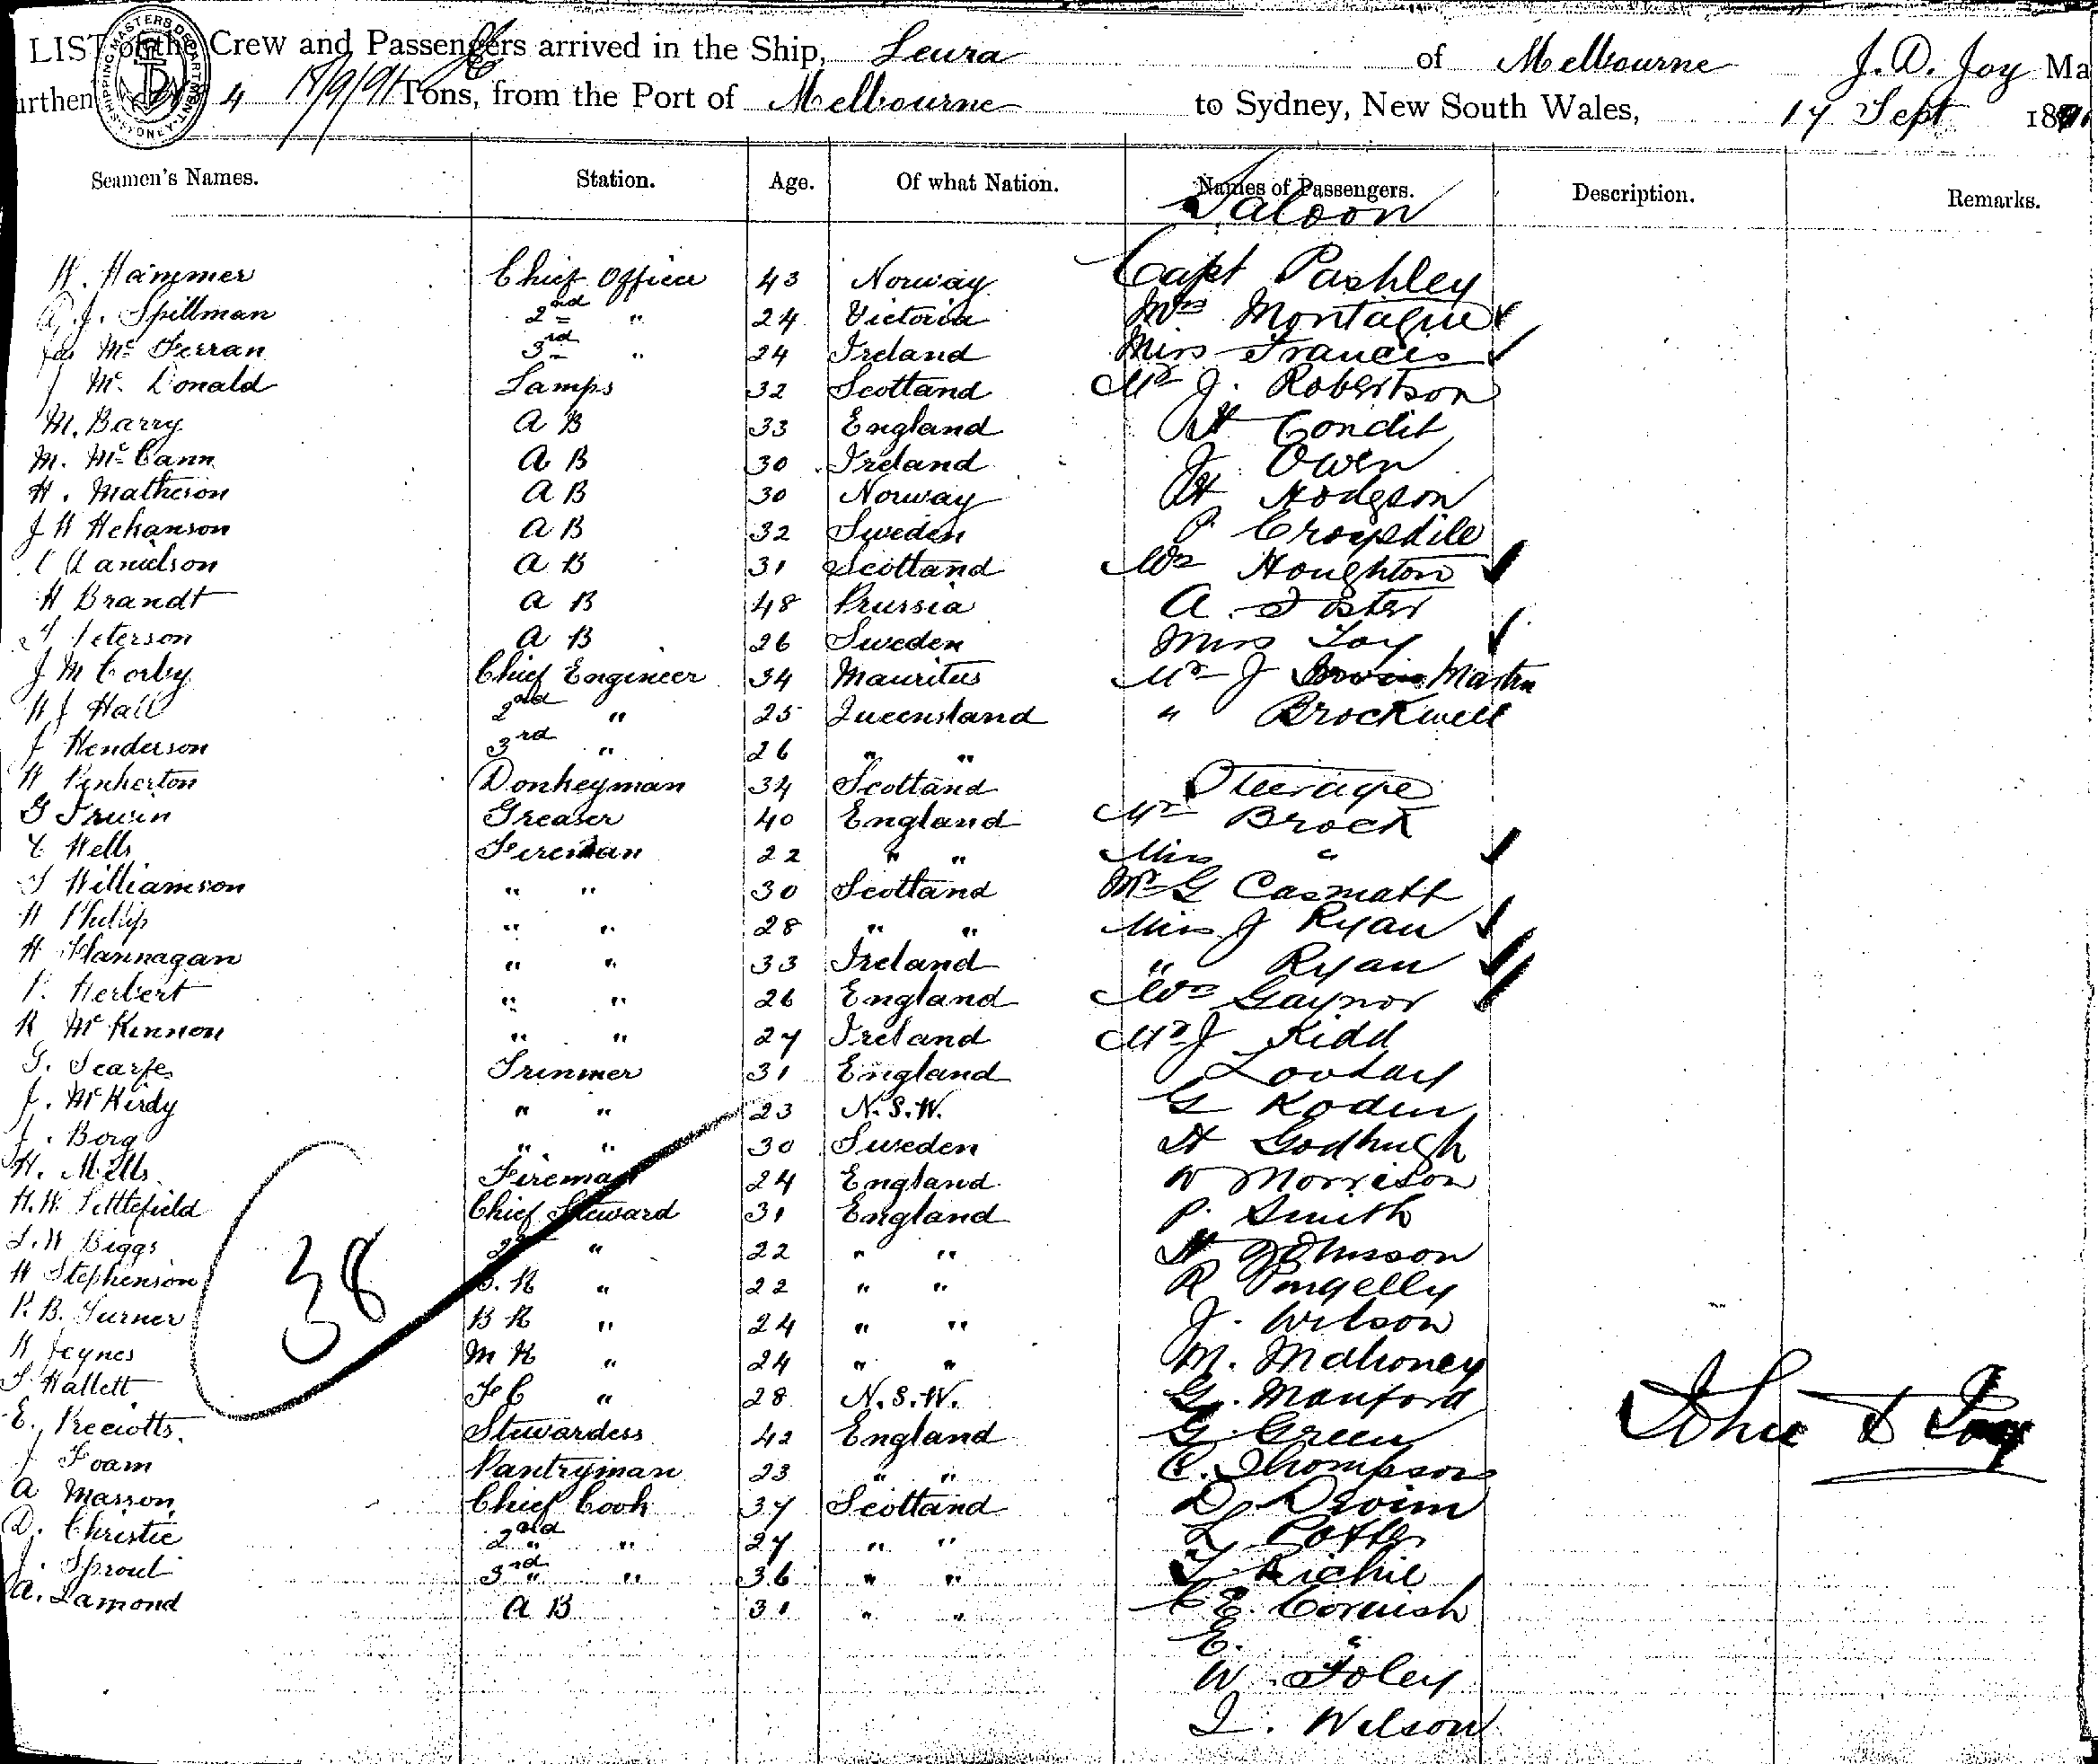 LIST of the Crew and Passengers arrived in the Ship, Leura of Melbourne J. D. Joy Ma
urthen 4 18/9/91 Tons, from the Port of Melbourne to Sydney, New South Wales, 17 Sept 1891
SHIPPING MASTERS DEPARTMENT SYDNEY
Seamen's Names. Station. Age. Of what Nation. Names of Passengers. Description. Remarks.
Saloon
H. Hammer Chief Officer 43 Norway Capt Pashley
A. J. Spillman 2nd " 24 Victoria Mrs Montague
Jas Mc Ferran 3rd " 24 Ireland Miss Francis
J Mc Donald Lamps 32 Scotland Mr J. Robertson
M. Barry A B 33 England H Condit
M. Mc Cann A B 30 Ireland J. Owen
H. Matheson A B 30 Norway H Hodgson
J H Hekanson A B 32 Sweden P.
Danielson A B 31 Scotland Mrs Houghton
H Brandt A B 48 Prussia A. Foster
Peterson A B 26 Sweden Miss Joy
J M Corby Chief Engineer 34 Mauritus Mr J Martin
H J Hall 2nd " 25 Queensland " Brockwell
J Henderson 3rd " 26 " "
H Pinkerton Donkeyman 34 Scotland Steerage
G Irwin Greaser 40 England Mr Brock
Wells Fireman 22 " " Miss "
Williamson " " 30 Scotland Mr G Casmatt
H Phillip " " 28 " " Miss J Ryan
H Flannagan " " 33 Ireland " Ryan
P. Herbert " " 26 England Mrs Gaynor
R McKinnon " " 27 Ireland Mr J Kidd
G. Scarfe Trimmer 31 England
J. McKirdy " " 23 N.S.W. G
J. Borg " " 30 Sweden H Godhugh
H. Mills Fireman 24 England W Morrison
H.W. Littlefield Chief Steward 31 England P. Smith
Biggs 2nd " 22 " " H Johnson
H Stephenson " 22 " " R Pengelly
P. B. Turner B R " 24 " " J. Wilson
H Jeynes M R " 24 " " M. Mahoney
Hallett F C " 28 N.S.W. G. Manford
E. Stewardess 42 England G. Green
J Foam Pantryman 23 " " C. Thompson
A Masson Chief Cook 37 Scotland D.
D. Christie 2nd " " 27 " " L Potter
J. Sproul 3rd " " 36 " " T Richie
A. Lamond A B 31 " " C E. Cornish
E. "
W. Foley
J. Wilson
38
John D Joy